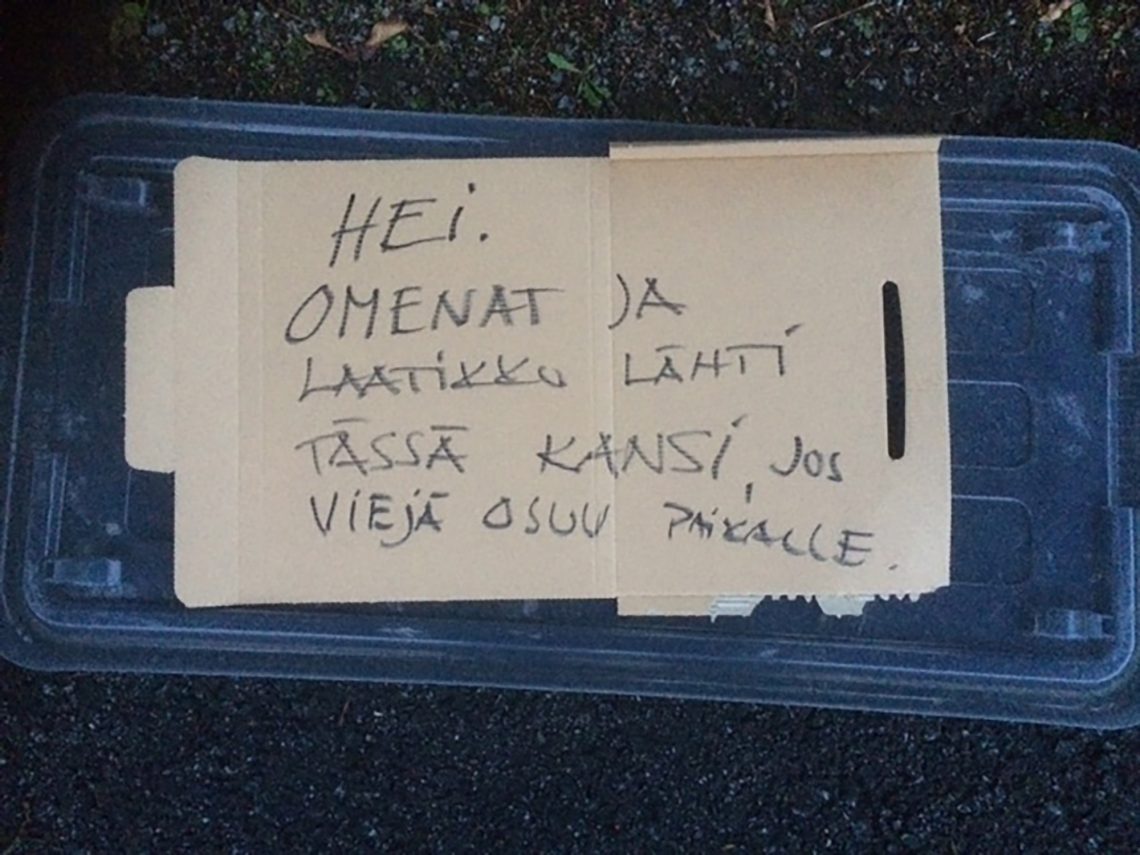 HEi.
OMENAT JA
LAATiKKO LÄHTi
TÄSSÄ KANSi, JOS
ViEJÄ OSUU PAiKALLE.